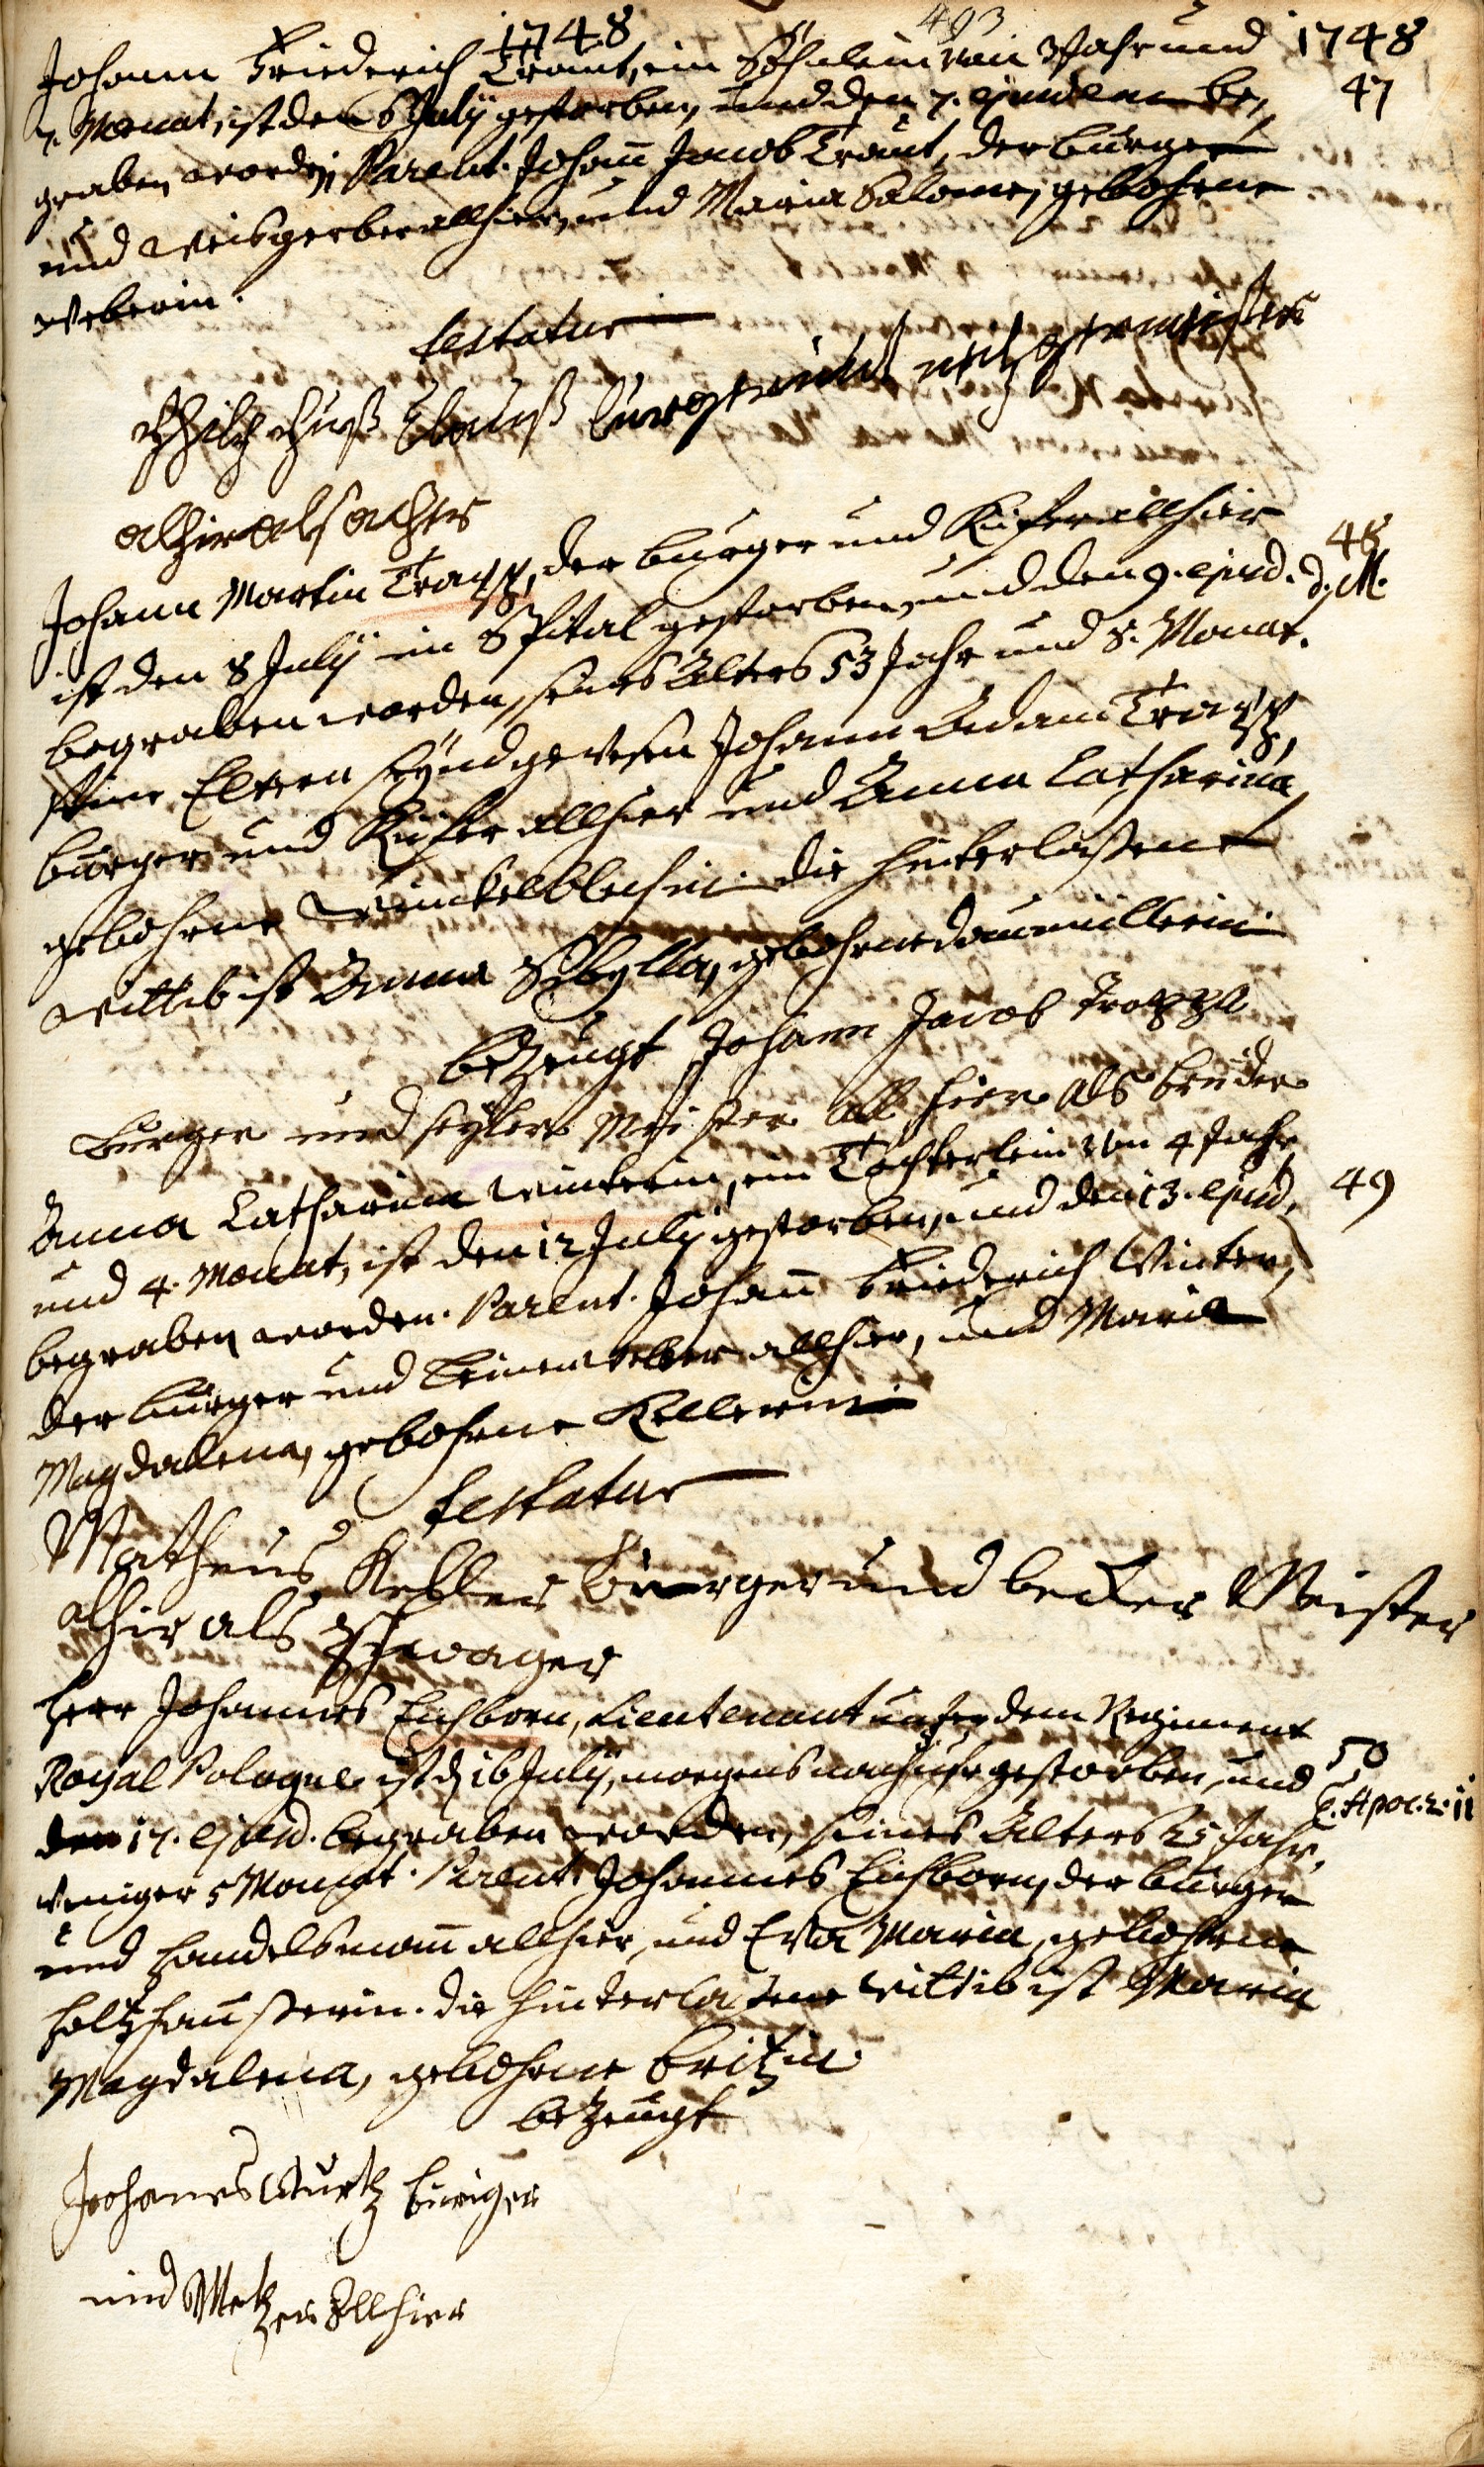 1748
403
1748
Johann Friederich Traut, ein Söhnlein von 3 Jahr und
7. Monat, ist den 6 July gestorben, und den 7. ejusdem be-
47
graben worden, Parent. Johann Jacob Traut, der burger
und Weisgerber allhier, und Maria Salome, gebohrne
Weberin.
testatur
burger und metzger meister
alhir als
Johann Martin Trapp, der burger und Küfer allhier
48
ist den 8 July im Spital gestorben, und den 9. ejusd.
d. M.
begraben worden, seines Alters 53 Jahr und 8. Monat.
Seine Eltern seynd gewesen Johann Adam Trapp,
burger und Küfer allhier und Anna Catharina,
gebohrne Winckelblechin. die hinterlaßene
Wittib ist Anna Sybilla, gebohrne daumüllerin.
bezeugt Johann Jacob Trapp
burger und seyler Meister all hier als bruder
Anna Catharina Winterin, ein Töchterlein von 4 Jahr,
und 4. Monat, ist den 12 July gestorben, und den 13. ejusd.
49
begraben worden. Parent. Johann Friederich Winter,
der burger und Leinenweber allhier, und Maria
Magdalena, gebohrne Kellerin
testatur
Matheus Keller burger und becker Meister
alhir als schwager
Herr Johannes Eichborn, Lieutenant unter dem Regiment
50
Royal Pologne ist d. 16 July, morgens nach uhr gestorben, und
T. Apoc. 2: 11
den 17. ejusd. begraben worden, seines Alters 25 Jahr,
weniger 5 Monat. Parent. Johannes Eichborn, der burger
und Handelsmann allhier, und Eva Maria, gebohrne
Holtzhaußerin. die hinterlaßene Wittib ist Maria
Magdalena, gebohrne Britzin
bezeugt
Johanes Kurtz burger
und Metzger allhier